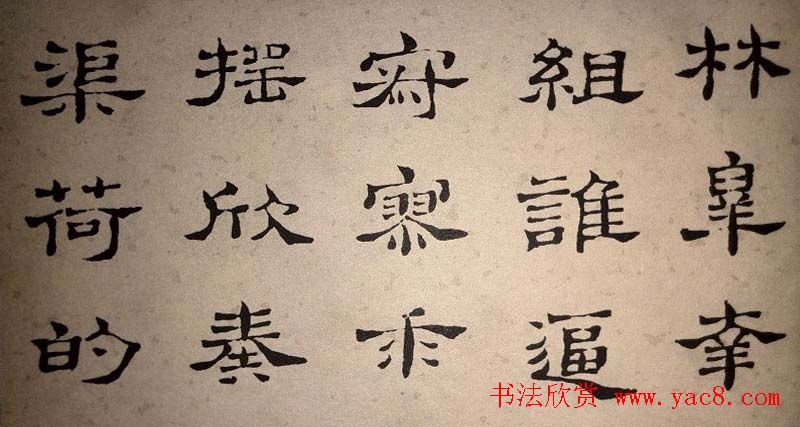 林皋幸
組誰逼
寂寥求
搖欣奏
渠荷的
书法欣赏 www.yac8.com